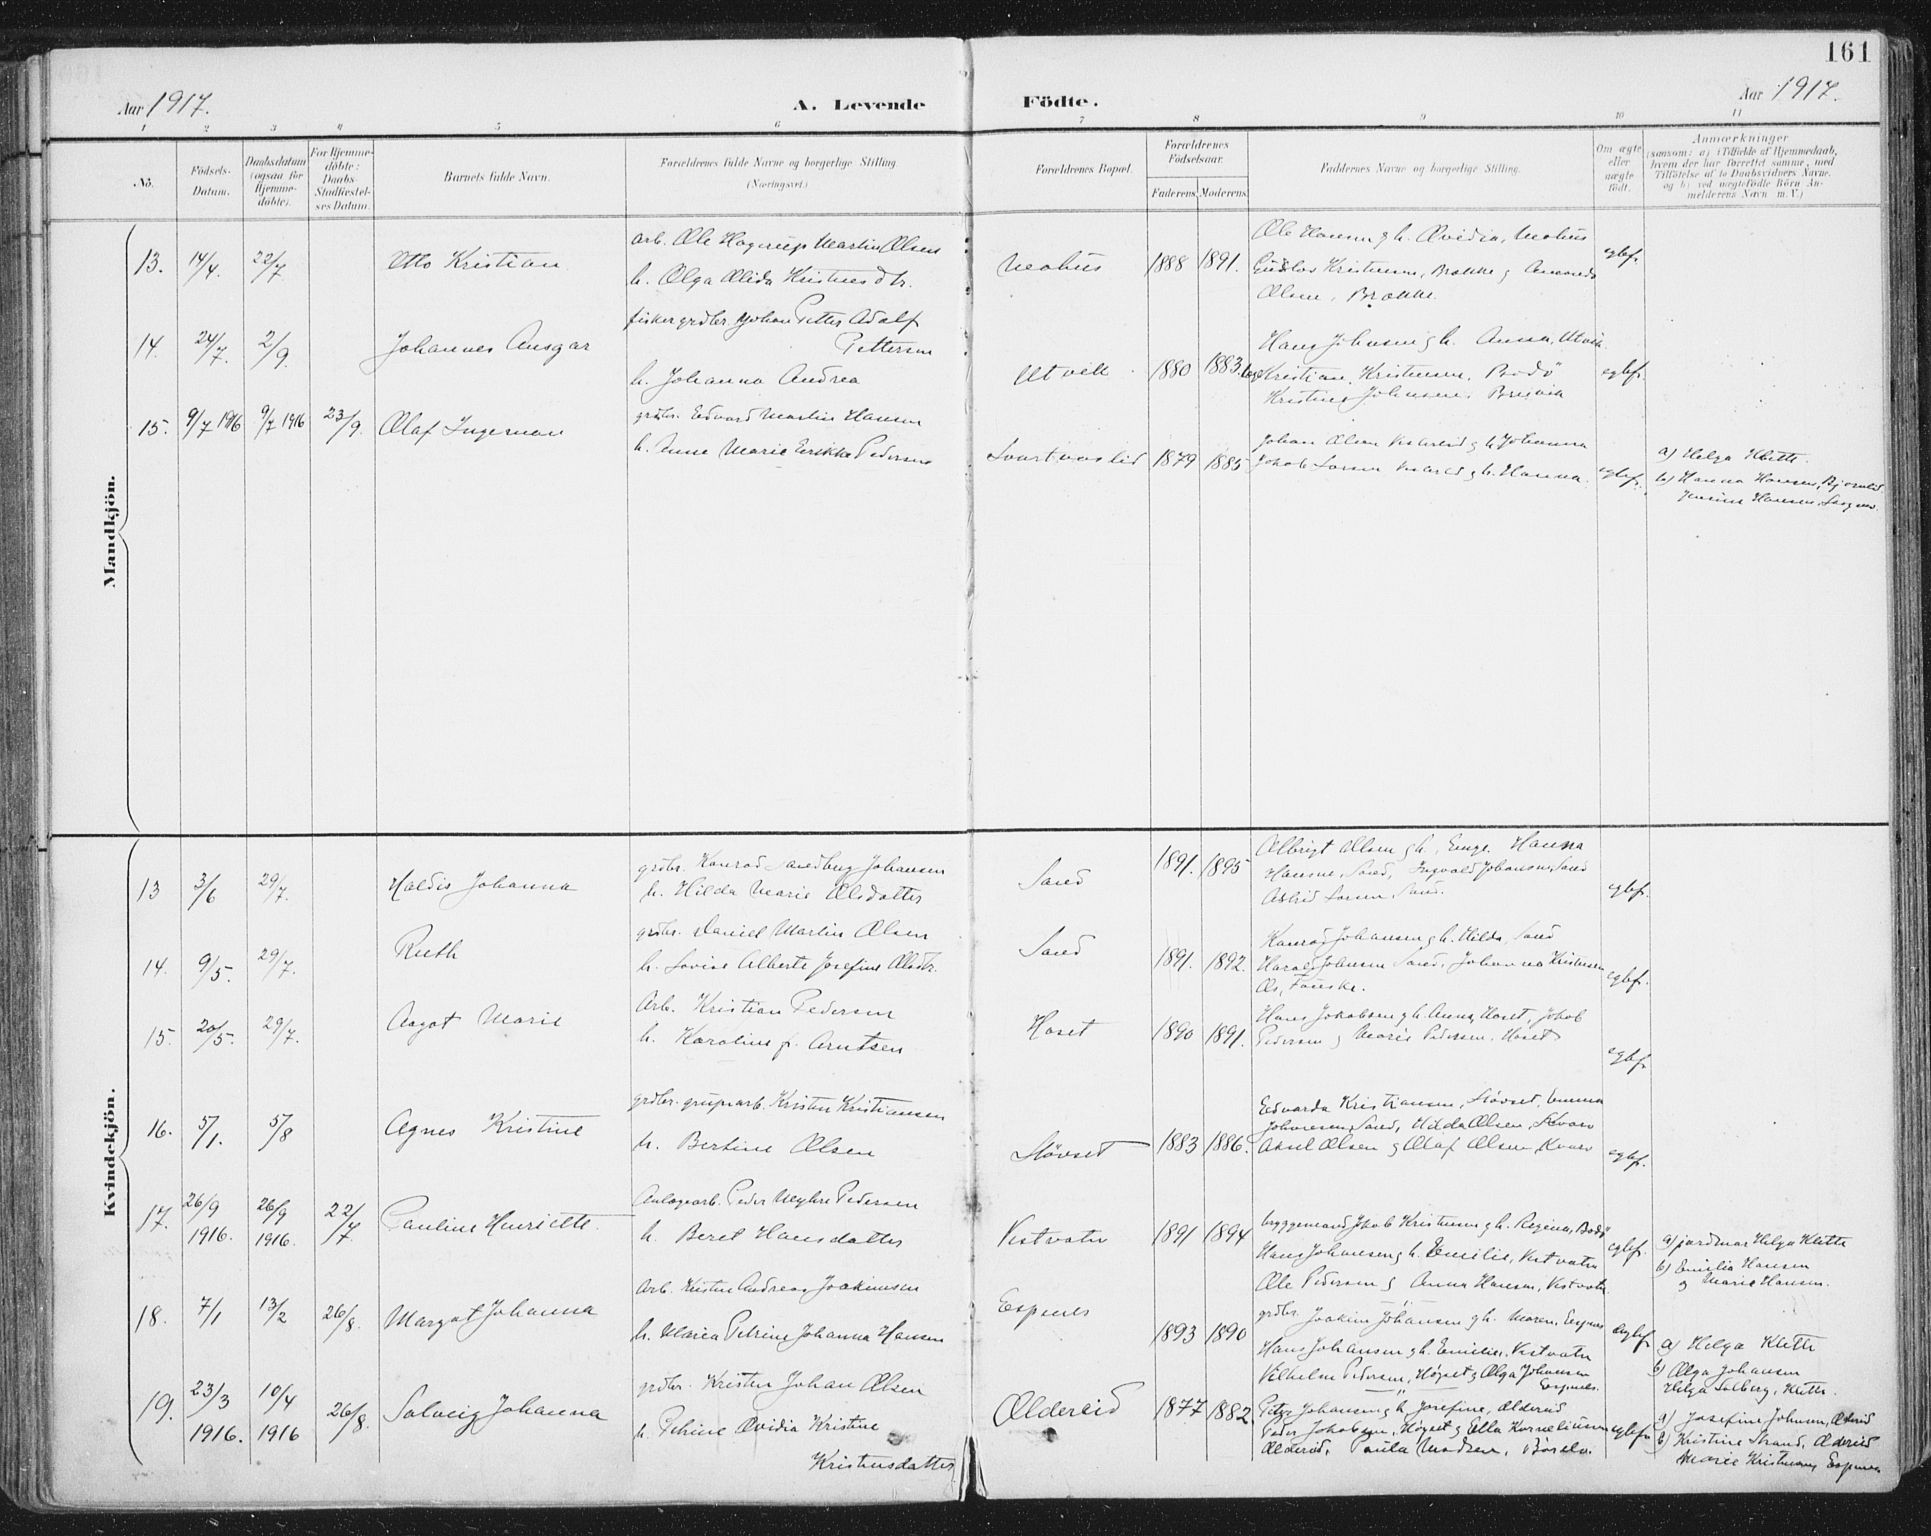 161
Aar 1917.
A. Levende Födte.
Aar 1917.
1 2 3 4 5 6 7 8 9 10 11
No.
Födsels-
Datum.
Daabsdatum
(ogsaa for
Hjemme-
döbte).
For Hjemme-
döbte:
Daabs-
Stadfæstel-
ses Datum.
Barnets fulde Navn.
Forældrenes fulde Navne og borgerlige Stilling.
(Næringsvei.)
Forældrenes Bopæl.
Forældrenes
Födselsaar.
Faderens. Moderens.
Faddernes Navne og borgerlige Stilling.
Om ægte
eller
uægte
födt.
Anmærkninger
(saasom: a) i Tilfælde af Hjemmedaab,
hvem der har forrettet samme, med
Tilföielse af to Daabsvidners Navne,
og b) ved uægtefödte Börn An-
melderens Navn m.V.)
Mandkjön.
13. 14/4. 22/7. Otto Kristian
arb. Ole Hagerup Martin Olsen
h. Olga Alida Kristensdtr.
1888 1891.
Ole Hansen g h. Ovidia,
Kristensen, Brække g
Olsen, Brække.
egtef.
14. 24/7. 2/9. Johannes Ansgar
fisker grdbr. Johan Petter Adolf
Pettersen
h. Johanna Andrea
Utvik 1880 1883.
Hans Johnsen g h. Anna, Utvik.
Kristian Kristensen, Bodö
Kristine Johnsen,
egtef.
15. 9/7 1916 9/7 1916 23/9. Olaf Ingeman
grdbr. Edvard Martin Hansen
h. Anne Marie Erikke Pedersen
Svartvaslid 1879 1885
Johan Olsen g h Johanna
Jakob Larsen g h. Hanna.
egtef.
a) Helga Klette.
b) Hanna Hansen,
Hansen,
Kvindekjön.
13 3/6 29/7. Haldis Johanna
grdbr. Konrad Sandberg Johansen
h. Hilda Marie Olsdatter
Sand 1891. 1895
Albrigt Olsen g h, Enge. Hanna
Hansen, Sand, Ingvald Johansen, Sand
Astrid Larsen, Sand.
egtef.
14. 9/5. 29/7. Ruth
grdbr. Daniel Martin Olsen
h. Lovise Alberte Josefine Olsdtr.
Sand 1891. 1892.
Konrad Johansen g h. Hilda, Sand
Harald Johansen Sand, Johanna Kristensen
Os, Fauske.
egtef.
15. 20/5. 29/7. Aagot Marie
Arb. Kristian Pedersen
h. Karoline f. Arntsen
Hoset 1890 1891.
Hans Jakobsen g h. Anna, Hoset, Jakob
Pedersen g Marie Pedersen, Hoset
egtef.
16. 5/1. 5/8 Agnes Kristine
grdbr. grubearb. Kristen Kristiansen
h. Bertine Olsen
Stövset 1883 1886.
Edvarda Kristiansen, Stövset, Emma
Johansen, Sand, Hilda Olsen,
Aksel Olsen g Olaf Olsen,
egtef.
17. 26/9 1916. 26/9 1916. 22/7. Pauline Henriette.
Anlægsarb. Peder Myhre Pedersen
h. Beret Hansdatter
Vestvatn 1891 1894
byggemand Jakob Kristensen g h. Regine, Bodö
Hans Johansen g h. Emilie, Vestvatn
Ole Pedersen g Anna Hansen, Vestvatn.
egtef.
a) jordmor Helga Klette
b) Emilia Hansen
g Marie Hansen.
18. 7/1 13/2 26/8. Margot Johanna
Arb. Kristen Andreas Joakimsen
h. Marea Petrine Johanna Hansen
Espenes 1893 1890
grdbr. Joakim Johansen g h. Maren, Espenes
Hans Johansen g h. Emilie, Vestvatn
Vilhelm Pedersen, Högset g Olga Johansen
Espenes.
egtef.
a) Helga Klette
b) Olga Johansen
Helga Solberg, Klette.
19. 23/3 1916. 10/4 1916 26/8. Solveig Johanna
grdbr. Kristen Johan Olsen
h. Petrine Ovidia Kristine
Kristensdatter.
Oldereid 1877 1882.
Peter Johansen g h Josefine, Oldereid
Peder Jakobsen, Högset g Ella Korneliussen
Oldereid, Paula Madsen,
egtef.
a) Josefine Johnsen, Oldereid
b) Kristine Strand, Oldereid
Marie Kristensen, Espenes